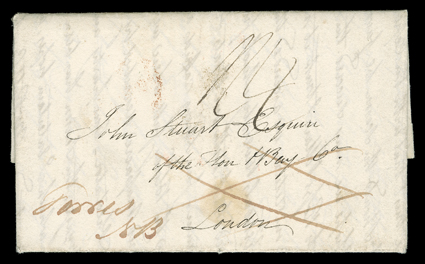 John Stuart Esquire
of the Hon H Bay Co.
London
Forres
NB